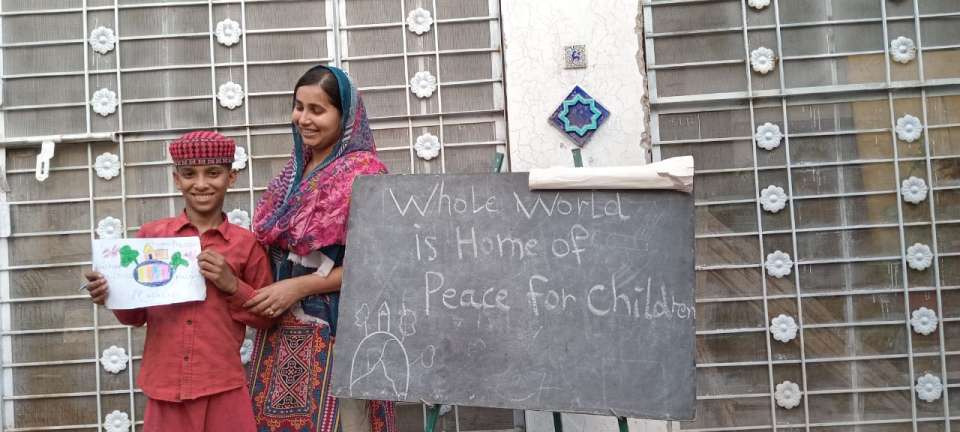 Whole World
is Home of
Peace for Children